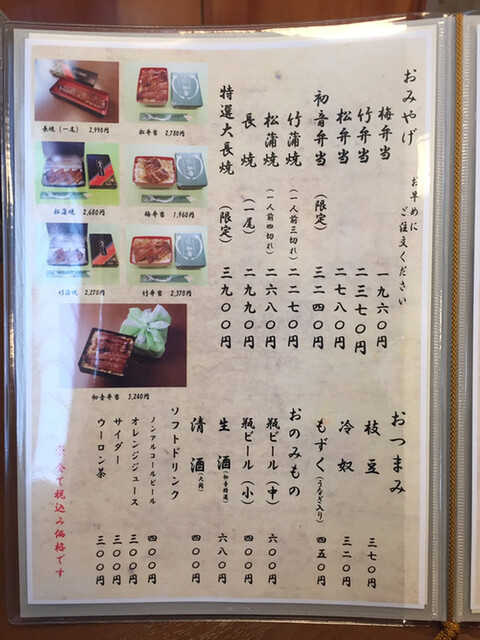 おみやげ お早めにご注文ください
梅弁当 一九六〇円
竹弁当 二三七〇円
松弁当 二七八〇円
初音弁当 (限定) 三二四〇円
竹蒲焼 (一人前三切れ) 二二七〇円
松蒲焼 (一人前四切れ) 二六八〇円
長焼 (一尾) 二九九〇円
特選大長焼 (限定) 三九〇〇円
長焼(一尾) 2,990円
松弁当 2,780円
松蒲焼 2,680円
梅弁当 1,960円
竹蒲焼 2,270円
竹弁当 2,370円
初音弁当 3,240円
おつまみ
枝豆 三七〇円
冷奴 三二〇円
もずく(うなぎ入り) 四五〇円
おのみもの
瓶ビール(中) 六〇〇円
瓶ビール(小) 四〇〇円
生酒(初音特選) 六八〇円
清酒(大関) 四〇〇円
ソフトドリンク
ノンアルコールビール 四〇〇円
オレンジジュース 三〇〇円
サイダー 三〇〇円
ウーロン茶 三〇〇円
※全て税込み価格です